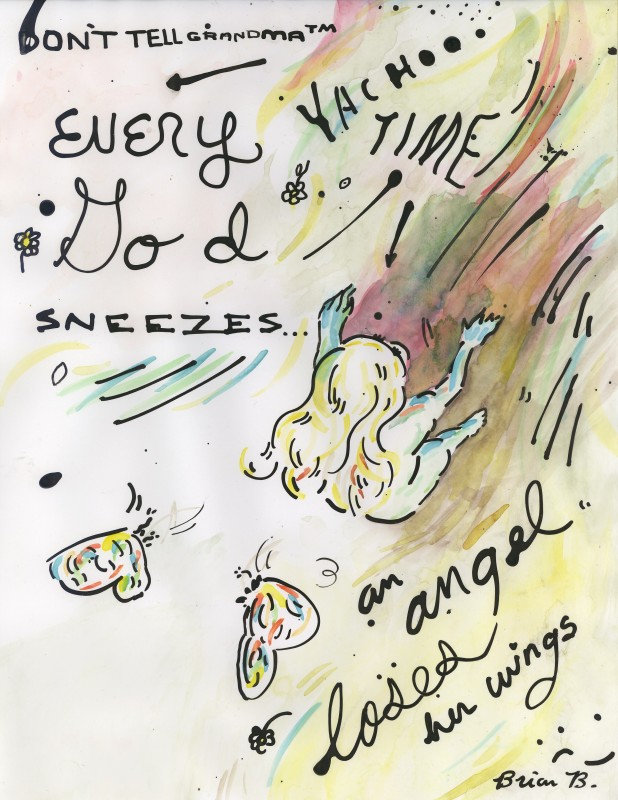 DON'T TELL GRANDMA™
YACHOO
EVERY
TIME
God
SNEEZES...
an angel
loses
her wings
Brian B.